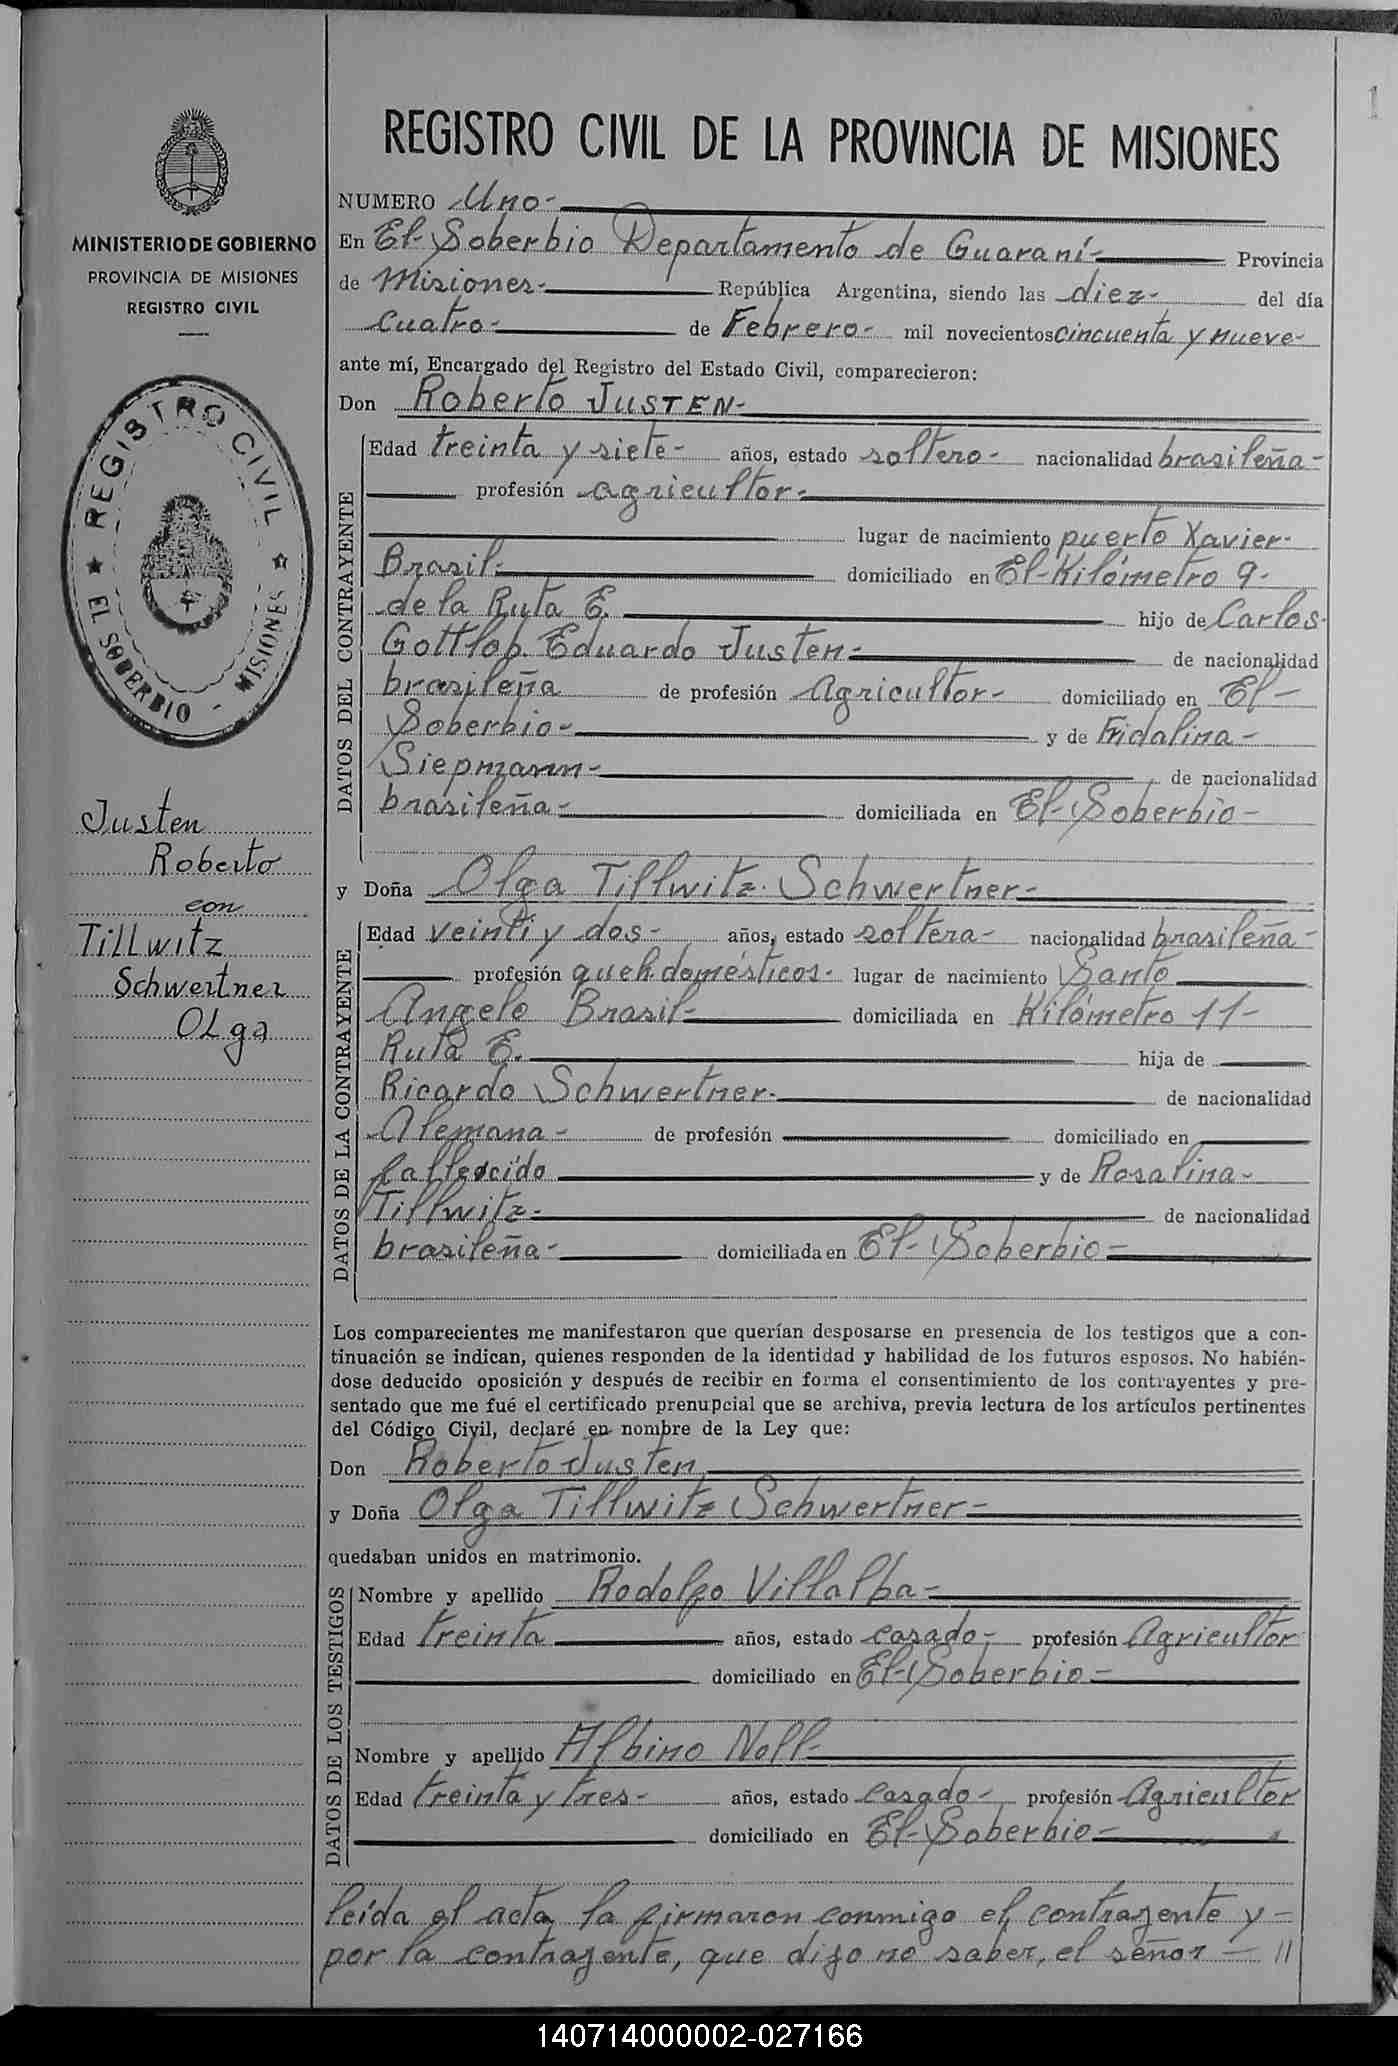 1
REGISTRO CIVIL DE LA PROVINCIA DE MISIONES
MINISTERIO DE GOBIERNO
PROVINCIA DE MISIONES
REGISTRO CIVIL
REGISTRO CIVIL
EL SOBERBIO - MISIONES
Justen
Roberto
con
Tillwitz
Schwertner
Olga
NUMERO Uno-
En El-Soberbio Departamento de Guaraní- Provincia
de Misiones- República Argentina, siendo las diez- del día
cuatro- de Febrero- mil novecientos cincuenta y nueve-
ante mí, Encargado del Registro del Estado Civil, comparecieron:
Don Roberto JUSTEN-
DATOS DEL CONTRAYENTE
Edad treinta y siete- años, estado soltero- nacionalidad brasileña-
profesión agricultor-
lugar de nacimiento puerto Xavier-
Brasil- domiciliado en El-Kilómetro 9-
de la Ruta E. hijo de Carlos-
Gottlob Eduardo Justen- de nacionalidad
brasileña de profesión Agricultor- domiciliado en El-
Soberbio- y de Fridalina-
Siepmann- de nacionalidad
brasileña- domiciliada en El-Soberbio-
y Doña Olga Tillwitz Schwertner-
DATOS DE LA CONTRAYENTE
Edad veinti y dos- años, estado soltera- nacionalidad brasileña-
profesión queh. domésticos- lugar de nacimiento Santo
Angelo Brasil- domiciliada en Kilómetro 11-
Ruta E. hija de
Ricardo Schwertner- de nacionalidad
Alemana- de profesión domiciliado en
fallecido y de Rosalina-
Tillwitz- de nacionalidad
brasileña- domiciliada en El-Soberbio-
Los comparecientes me manifestaron que querían desposarse en presencia de los testigos que a con-
tinuación se indican, quienes responden de la identidad y habilidad de los futuros esposos. No habién-
dose deducido oposición y después de recibir en forma el consentimiento de los contrayentes y pre-
sentado que me fué el certificado prenupcial que se archiva, previa lectura de los artículos pertinentes
del Código Civil, declaré en nombre de la Ley que:
Don Roberto Justen
y Doña Olga Tillwitz Schwertner-
quedaban unidos en matrimonio.
DATOS DE LOS TESTIGOS
Nombre y apellido Rodolfo Villalba-
Edad treinta años, estado casado- profesión Agricultor
domiciliado en El-Soberbio-
Nombre y apellido Albino Noll-
Edad treinta y tres- años, estado casado- profesión Agricultor
domiciliado en El-Soberbio-
leída el acta, la firmaron conmigo el contrayente y-
por la contrayente, que dijo no saber, el señor - //
140714000002-027166